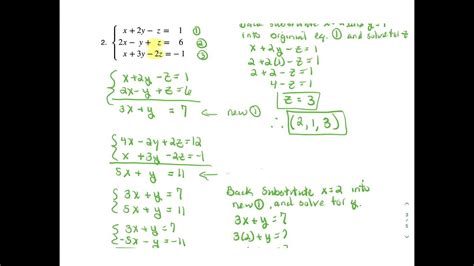 x + 2y − z = 1 ①
2. 2x − y + z = 6 ②
x + 3y − 2z = −1 ③
x+2y−z=1
2x−y+z=6
3x+y = 7 ← new ①
4x−2y+2z=12
x +3y−2z=−1
5x + y = 11 ←
3x+y = 7
5x + y = 11
3x+y=7
−5x − y = −11
Back substitute
into original eq. ① and solve for z
x + 2y − z = 1
2 + 2(1) − z = 1
2 + 2 − z = 1
4 − z = 1
z = 3
∴ (2, 1, 3)
Back substitute x=2 into
new ①, and solve for y.
3x+y=7
3(2)+y=7